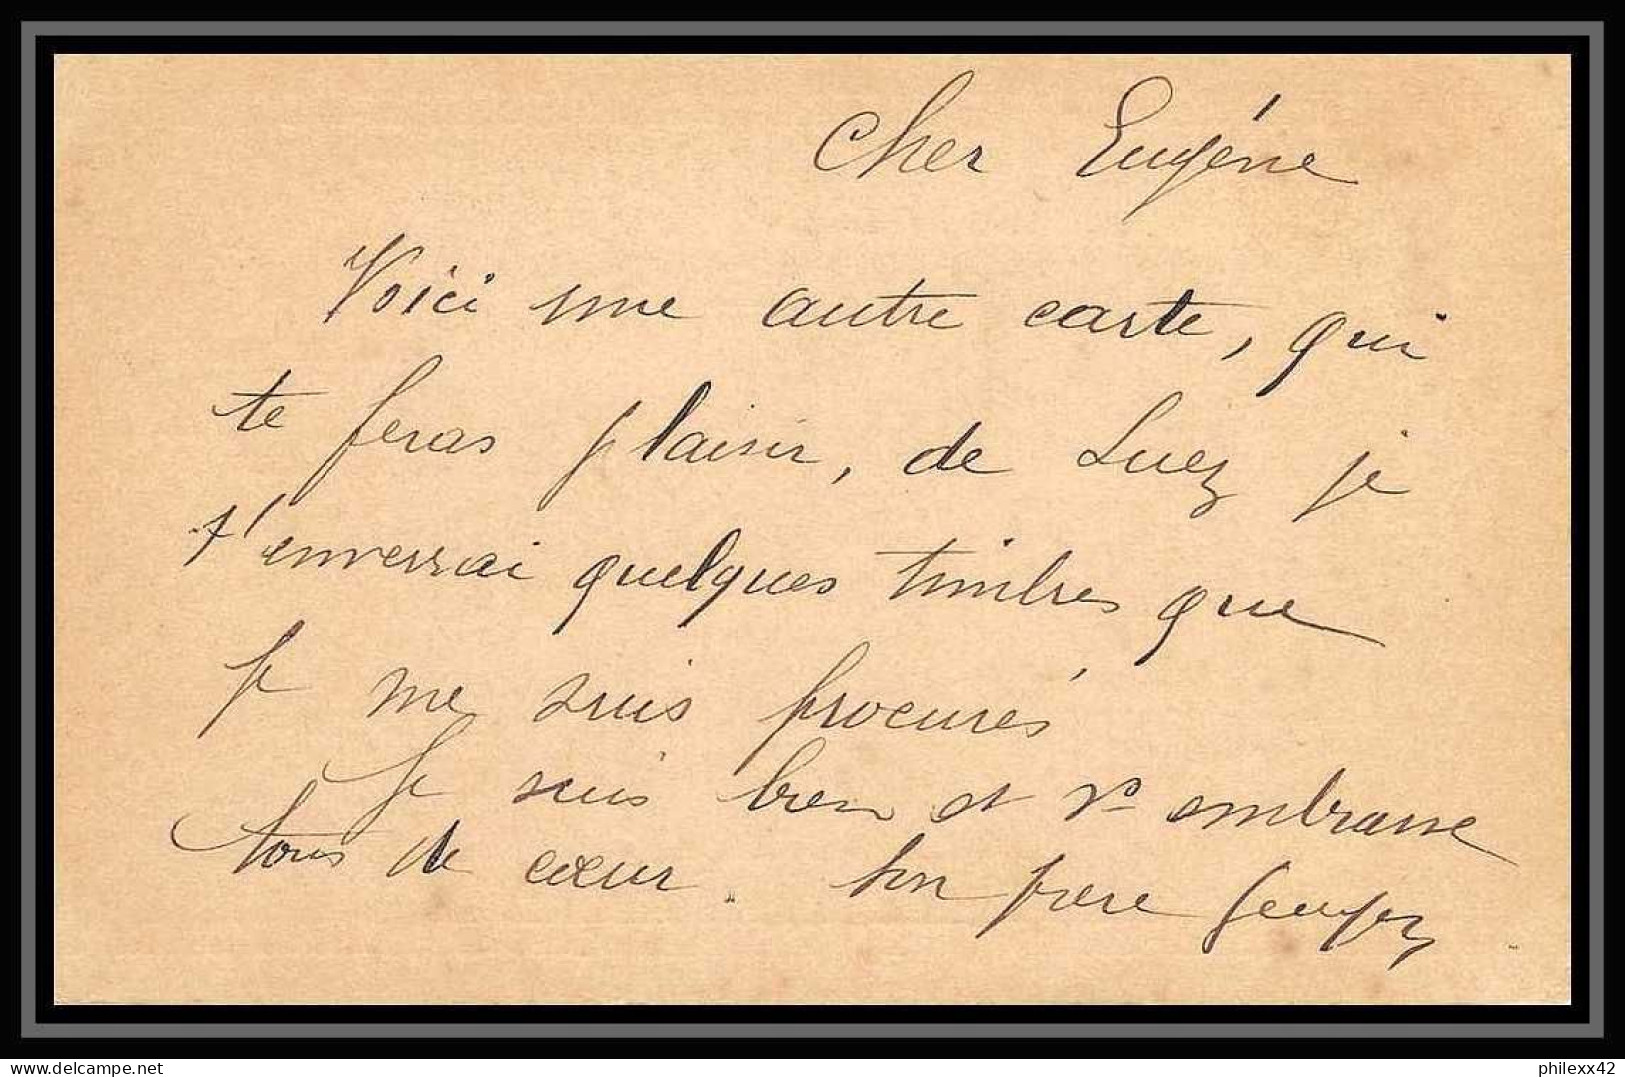 Cher Eugéne
Voici une autre carte, qui
te feras plaisir, de Suez je
t'enverrai quelques timbres que
je me suis procurés
Je suis bien et vs embrasse
tous de cœur. ton frere
philexx42